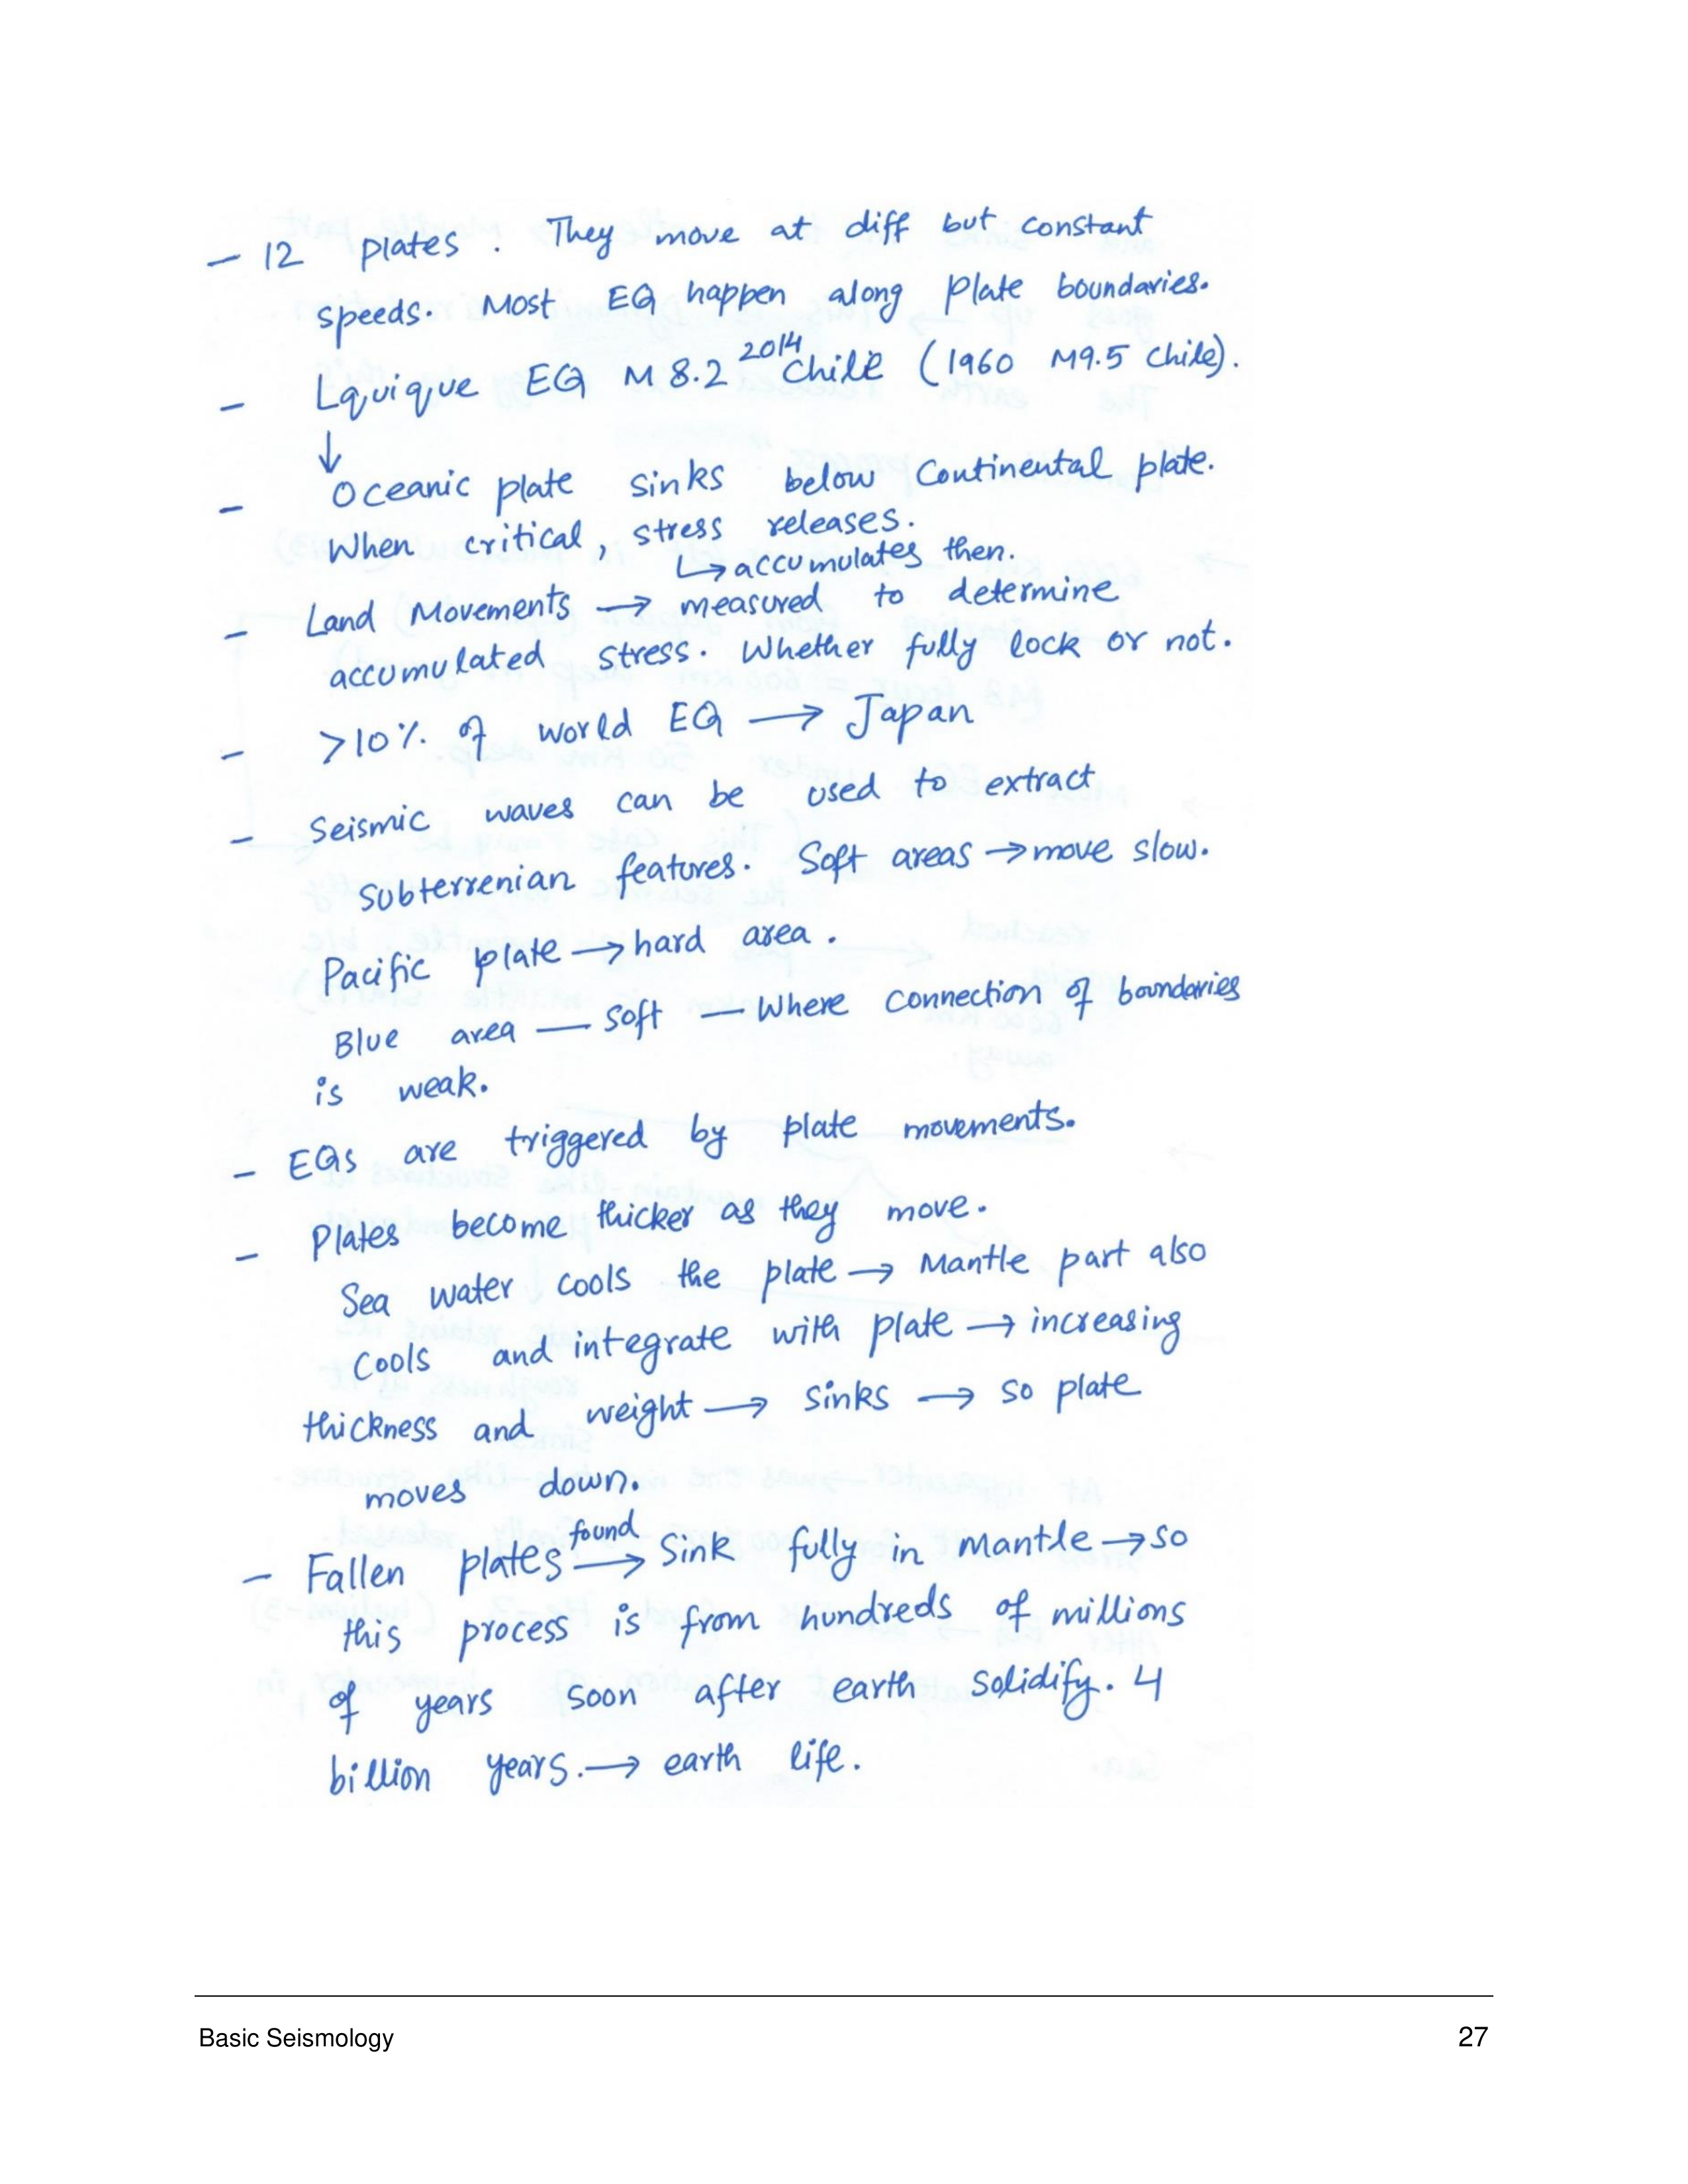 - 12 plates. They move at diff but constant
speeds. Most EQ happen along plate boundaries.
- Lquique EQ M 8.2 2014 Chile (1960 M9.5 Chile).
↓
- Oceanic plate sinks below Continental plate.
When critical, stress releases.
↳ accumulates then.
- Land Movements → measured to determine
accumulated stress. Whether fully lock or not.
- >10% of world EQ → Japan
- Seismic waves can be used to extract
subterrenian features. Soft areas → move slow.
Pacific plate → hard area.
Blue area — soft — where connection of boundaries
is weak.
- EQs are triggered by plate movements.
- Plates become thicker as they move.
Sea water cools the plate → Mantle part also
cools and integrate with plate → increasing
thickness and weight → sinks → so plate
moves down.
- Fallen plates found → sink fully in mantle → so
this process is from hundreds of millions
of years soon after earth solidify. 4
billion years. → earth life.
Basic Seismology 27